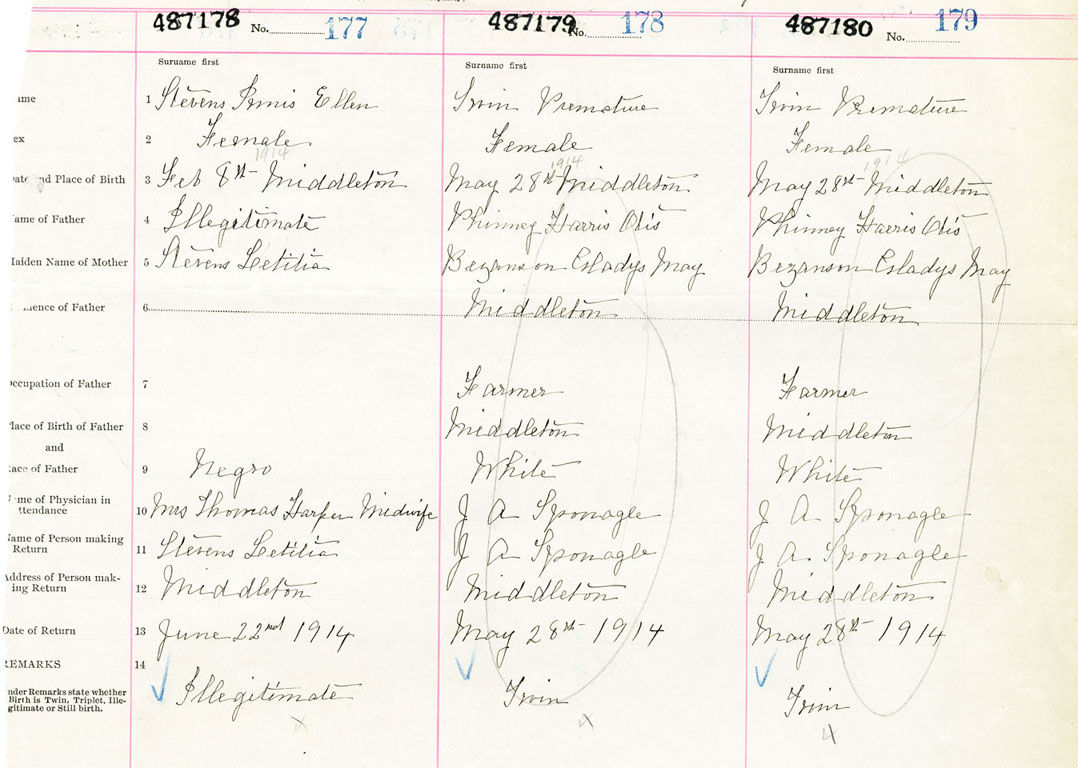 487178 No. 177 487179 No. 178 487180 No. 179
Surname first Surname first Surname first
ame 1 Stevens Ellen Twin Premature Twin Premature
ex 2 Female Female Female
1914 1914 1914
Date and Place of Birth 3 Feb 8th Middleton May 28th Middleton May 28th Middleton
ame of Father 4 Illegitimate Phinney Harris Otis Phinney Harris Otis
Maiden Name of Mother 5 Stevens Letitia Bezanson Gladys May Bezanson Gladys May
dence of Father 6 Middleton Middleton
Occupation of Father 7 Farmer Farmer
Place of Birth of Father 8 Middleton Middleton
and
ace of Father 9 Negro White White
me of Physician in
ttendance 10 Mrs Thomas Harper Midwife J A Sponagle J A Sponagle
Name of Person making
Return 11 Stevens Letitia J A Sponagle J A Sponagle
Address of Person mak-
ing Return 12 Middleton Middleton Middleton
Date of Return 13 June 22nd 1914 May 28th 1914 May 28th 1914
REMARKS 14
nder Remarks state whether
Birth is Twin, Triplet, Ille-
gitimate or Still birth. Illegitimate Twin Twin